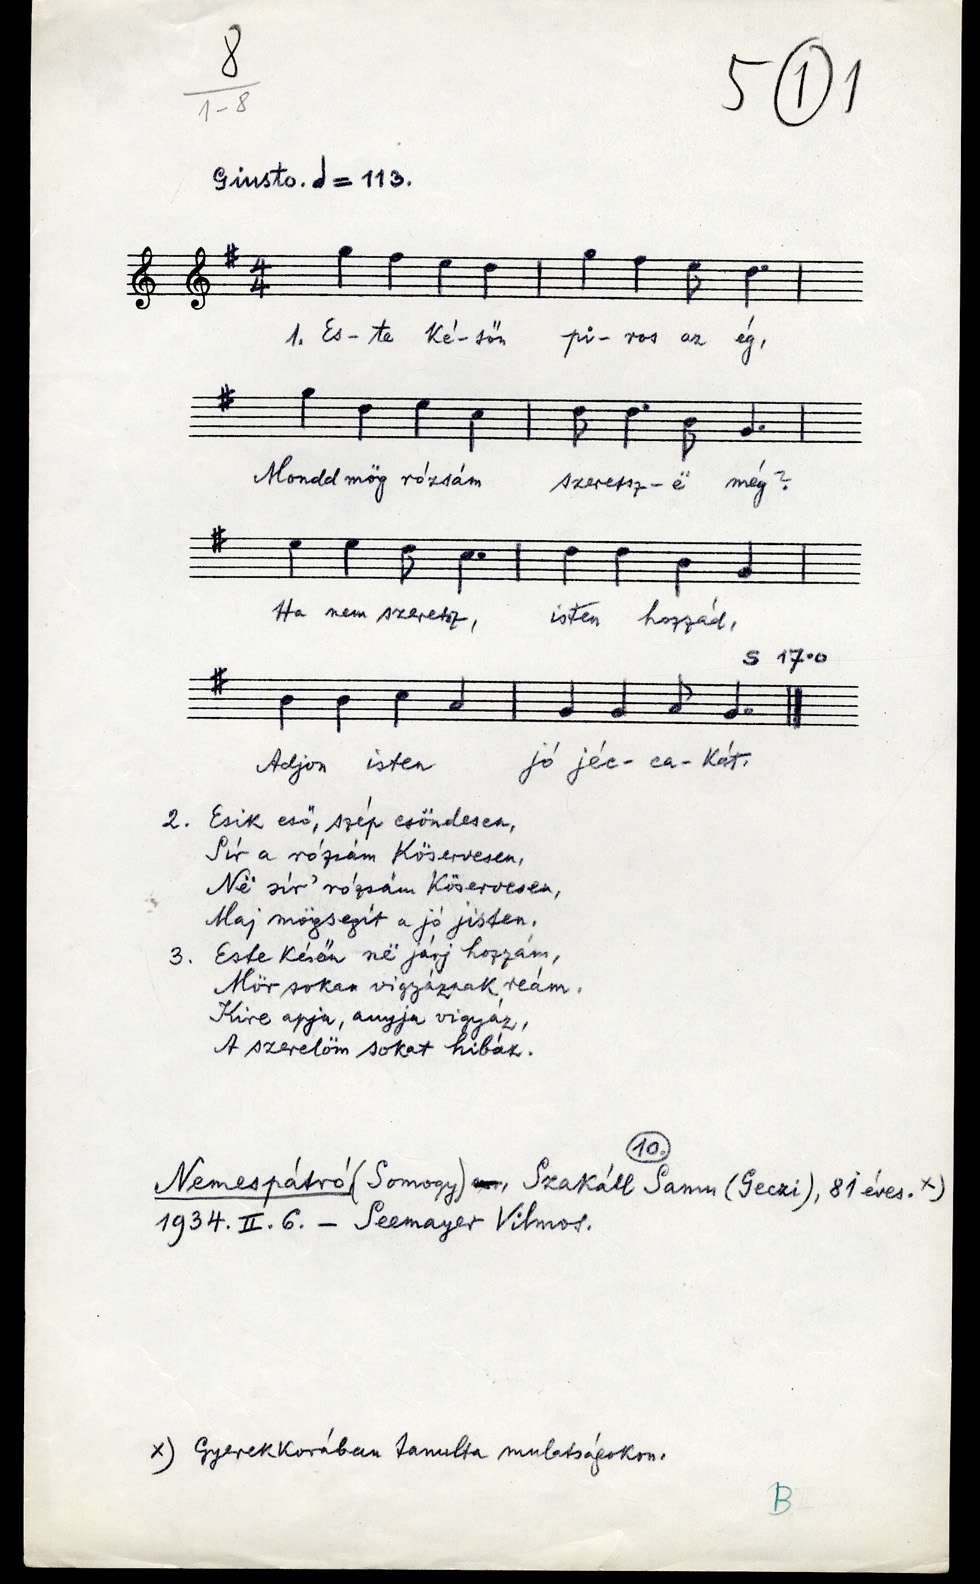 8
1-8
5 1 1
Giusto. d = 113.
4
4
1. Es-te ké-sőn pi-ros az ég,
Mondd mög rózsám szeretsz-ë még?
Ha nem szeretsz, isten hozzád,
S 17·0
Adjon isten jó jéc-ca-kát.
2. Esik eső, szép csöndesen,
Sír a rózsám köservesen,
Në sír' rózsám köservesen,
Maj mögsegít a jó jisten.
3. Este későn në járj hozzám,
Mör sokan vigyáznak reám.
Kire apja, anyja vigyáz,
A szerelöm sokat hibáz.
10.
Nemespátró (Somogy), Szakáll Samu (Geczi), 81 éves. x)
1934. II. 6. – Seemayer Vilmos.
x) Gyerekkorában tanulta mulatságokon.
B